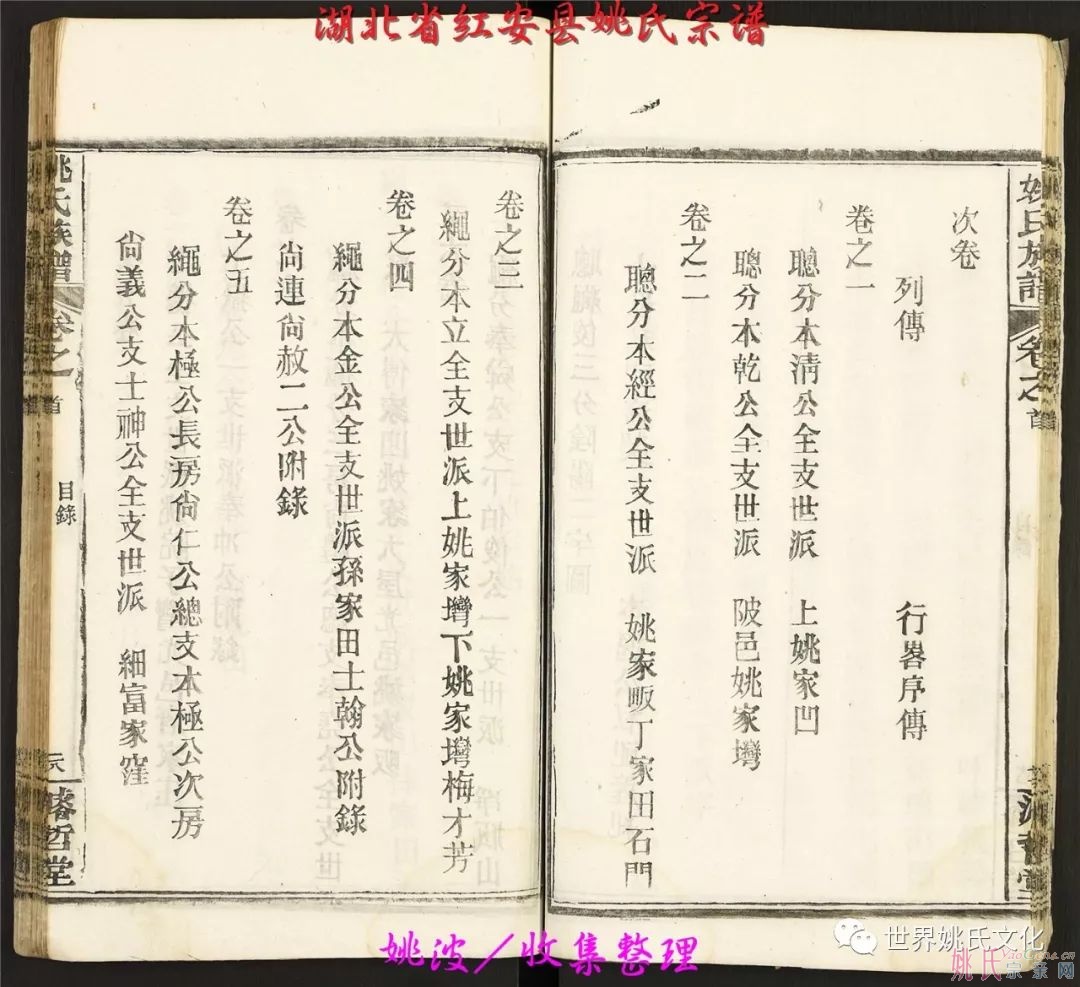 湖北省红安县姚氏宗谱
姚氏族譜
卷之
首
次卷
列傳 行畧序傳
卷之一
聰分本淸公全支世派 上姚家凹
聰分本乾公全支世派 陂邑姚家塆
卷之二
聰分本經公全支世派 姚家畈丁家田石門
卷之三
繩分本立全支世派上姚家塆下姚家塆梅才芳
卷之四
繩分本金公全支世派孫家田士翰公附錄
尙連尙赦二公附錄
卷之五
繩分本極公長房尙仁公總支本極公次房
尙義公支士神公全支世派 細富家窪
姚氏族譜
卷之
首
目錄
濬哲堂
姚波／收集整理
世界姚氏文化
姚氏宗亲网